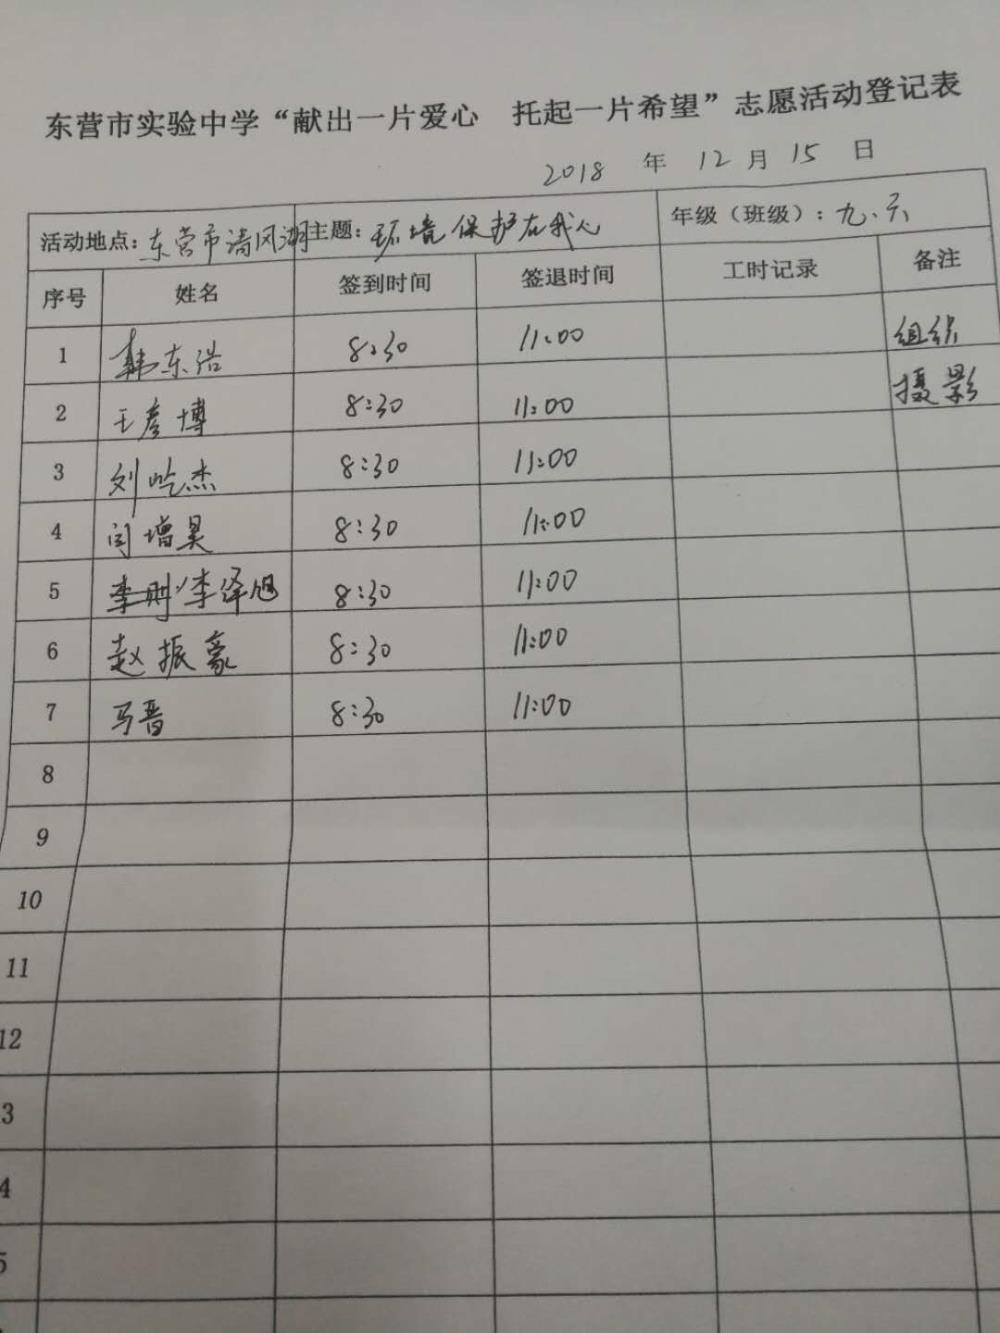 东营市实验中学“献出一片爱心 托起一片希望”志愿活动登记表
2018 年 12 月 15 日
活动地点：东营市清风湖 主题：环境保护在我心 年级（班级）：九、六
序号 姓名 签到时间 签退时间 工时记录 备注
1 韩东浩 8:30 11:00 组织
2 王彦博 8:30 11:00 摄影
3 刘屹杰 8:30 11:00
4 闫增昊 8:30 11:00
5 李则 李泽旭 8:30 11:00
6 赵振豪 8:30 11:00
7 马晋 8:30 11:00
8
9
10
11
12
3
4
5